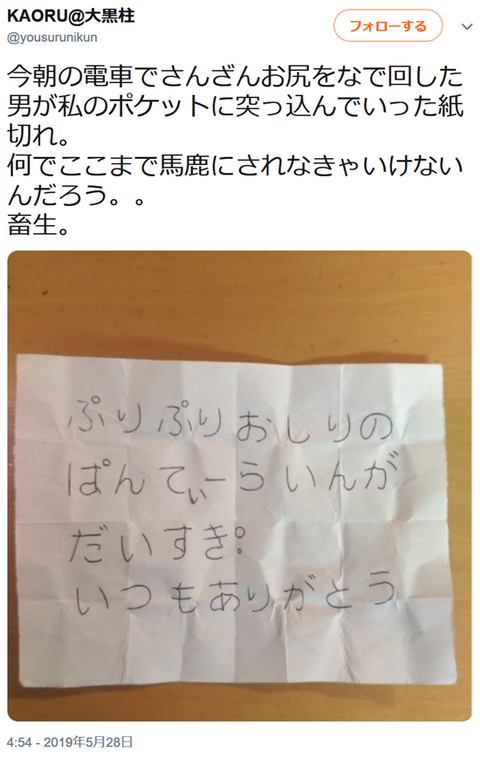 KAORU@大黒柱
@yousurunikun
フォローする
今朝の電車でさんざんお尻をなで回した
男が私のポケットに突っ込んでいった紙
切れ。
何でここまで馬鹿にされなきゃいけない
んだろう。。
畜生。
ぷりぷりおしりの
ぱんてぃーらいんが
だいすき。
いつもありがとう
4:54 - 2019年5月28日